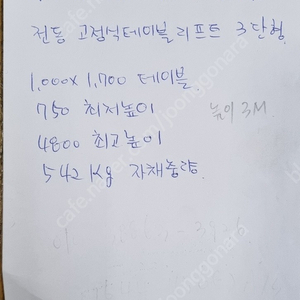 전동 고정식테이블리프트 3단형
1,000 x 1,700 테이블
750 최저높이 높이 3M
4800 최고높이
542 Kg 자채중량.